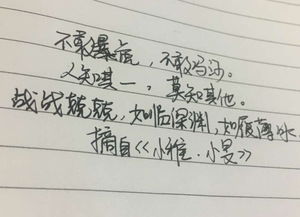 不敢暴虎，不敢冯河。
人知其一，莫知其他。
战战兢兢，如临深渊，如履薄冰。
摘自《小雅·小旻》